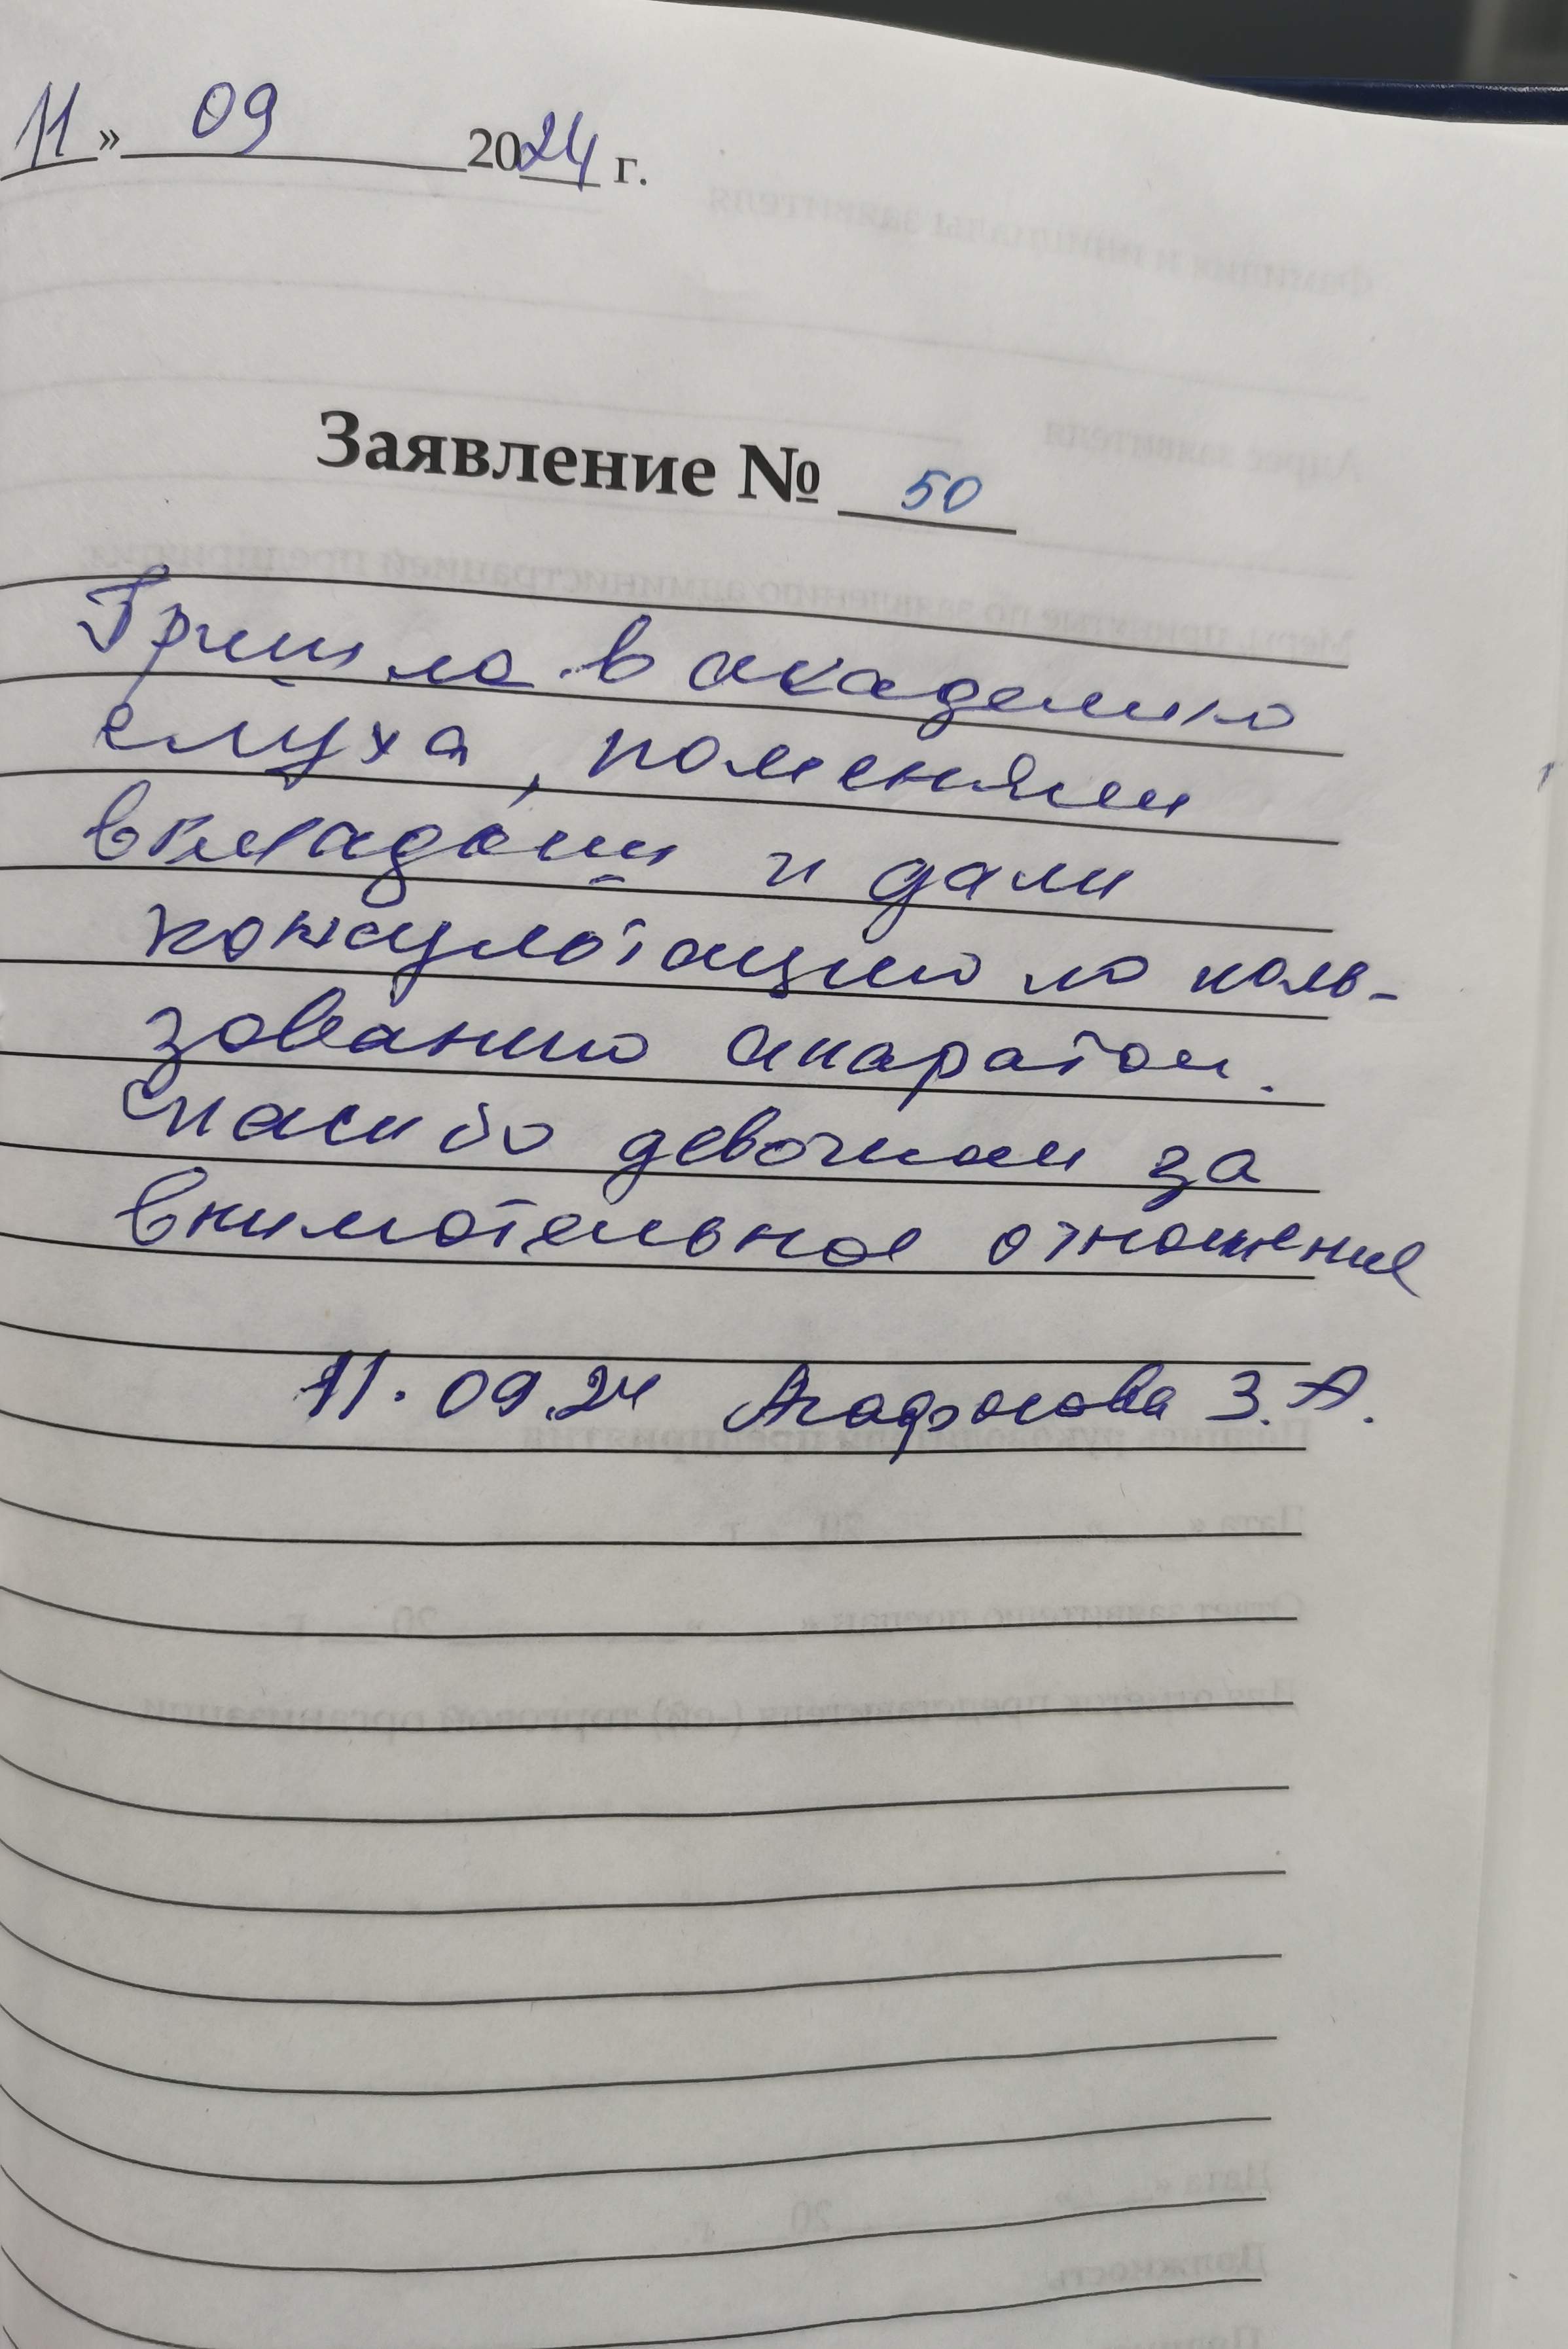 11» 09 2024 г.
Заявление № 50
Пришла в академию
слуха, поменяли
вкладыш и дали
консультацию по поль-
зованию апаратом.
Спасибо девочкам за
внимательное отношение
11.09.24 Агафонова З.А.